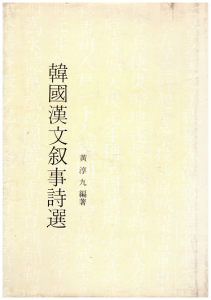 韓國漢文叙事詩選
黃淳九 編著